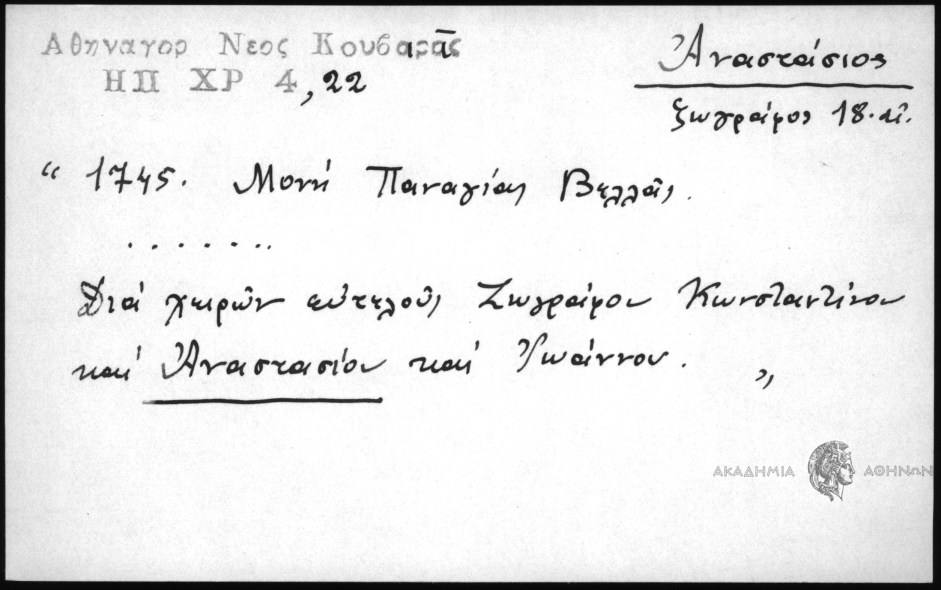 Αθηναγορ Νεος Κουβαρᾶς
ΗΠ ΧΡ 4, 22
Ἀναστάσιος
ζωγράφος 18. αἰ.
“ 1745. Μονή Παναγίας Βελλᾶς.
. . . . . . .
Διά χειρῶν εὐτελοῦς Ζωγράφου Κωνσταντίνου
καί Ἀναστασίου καί Ἰωάννου. ”
ΑΚΑΔΗΜΙΑ ΑΘΗΝΩΝ